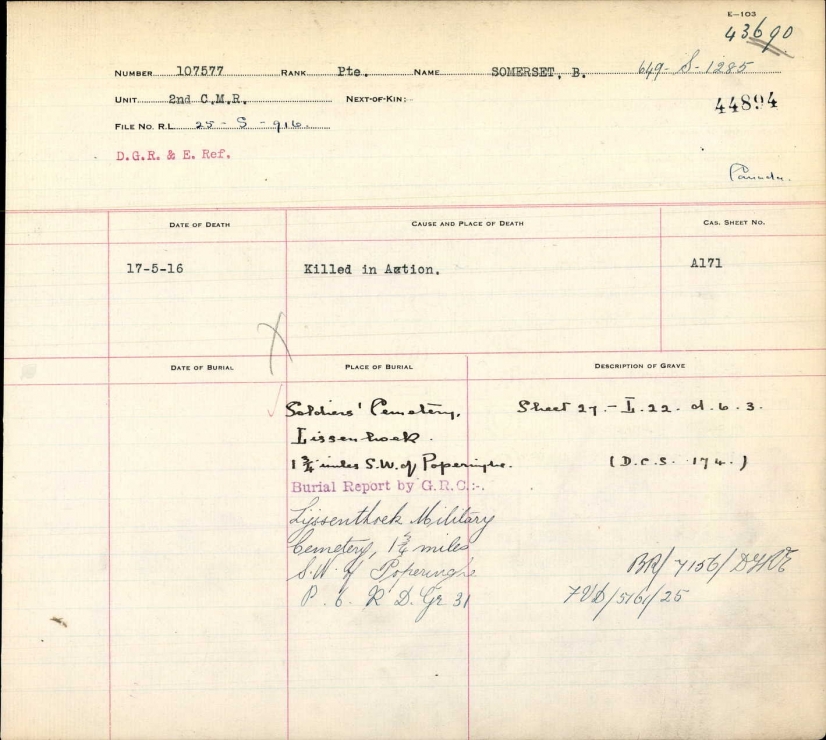 E-103
43690
NUMBER 107577 RANK Pte. NAME SOMERSET, B. 649-S-1285
UNIT 2nd C.M.R. NEXT-OF-KIN:
44894
FILE NO. R.L. 25 - S - 916.
D.G.R. & E. Ref.
Canada.
DATE OF DEATH CAUSE AND PLACE OF DEATH CAS. SHEET NO.
17-5-16 Killed in Action. A171
DATE OF BURIAL PLACE OF BURIAL DESCRIPTION OF GRAVE
Soldiers' Cemetery, Sheet 27.-I.22.d.6.3.
Lissenhoek.
1 3/4 miles S.W. of Poperinghe. (D.C.S. 174.)
Burial Report by G.R.C.:-.
Lijssenthoek Military
Cemetery, 1 3/4 miles
S.W. of Poperinghe
P. 6. R D. Gr 31
BR/7156/DGRE
7VD/5161/25